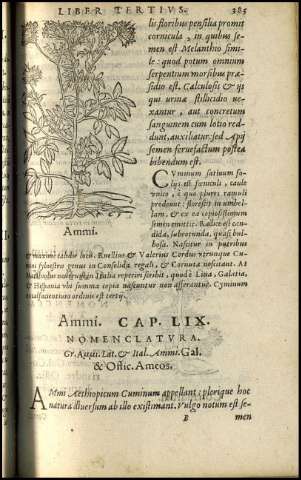 LIBER TERTIVS. 385
lis floribus pensilia promit
cornicula, in quibus se-
men est Melanthio simi-
le: quod potum omnium
serpentium morsibus præ-
sidio est. Calculosis & ijs
qui urinæ stillicidio ve-
xantur, aut concretum
sanguinem cum lotio red-
dunt, auxiliatur: sed Apij
semen feruefactum postea
bibendum est.
CVminum satiuum fo-
lijs est fœniculi, caule
vnico, è quo plures ramuli
prodeunt: flores in vmbel-
lam, & ex ea copiosissimum
semen emittit. Radice est
candida, quasi bul-
bosa. Nascitur in putribus
Ammi.
& maximè calidis locis. Ruellius & Valerius Cordus vtrunque Cu-
mini syluestris genus in Consolida regali, & Cornuta noscitant. At
Matthiolus Italia reperiri scribit, quod è Lina, Galatia,
& Hispania vbi summa copia nascuntur non afferantur. Cyminum
ordinis est tertij.
Ammi. CAP. LIX.
NOMENCLATVRA.
Gr. Lat. & Ital. Ammi. Gal.
& Offic. Ameos.
AMmi Aethiopicum Cuminum appellant: plerique hoc
natura diuersum ab illo existimant. Vulgo notum est se-
B men